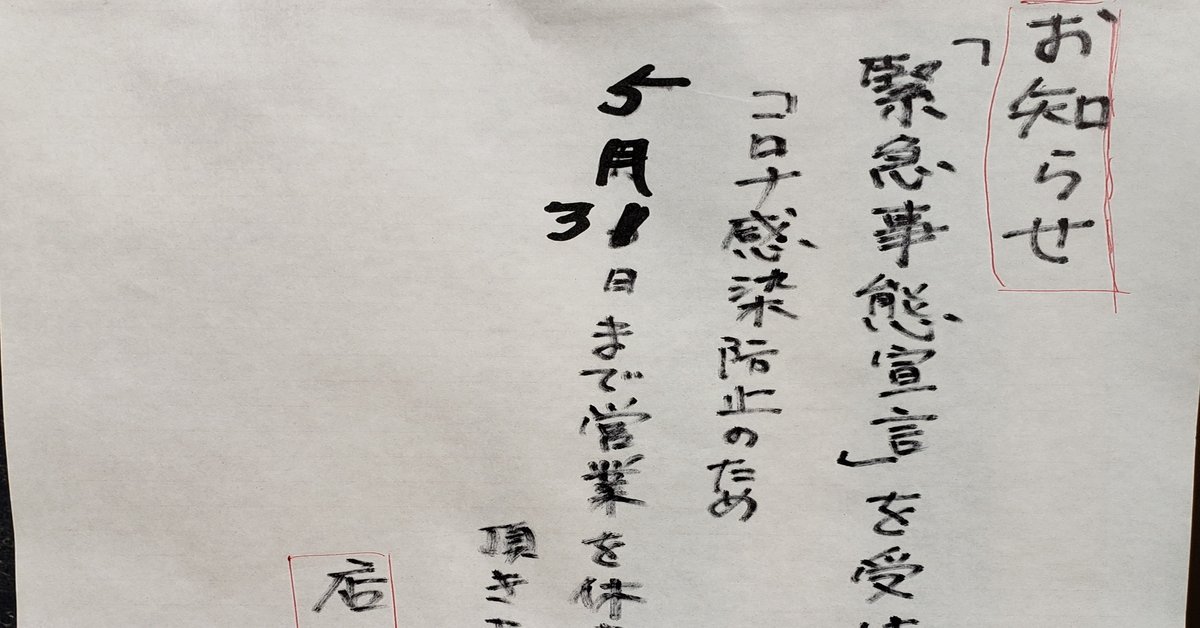 お知らせ
「緊急事態宣言」を受
コロナ感染防止のため
5月31日まで営業を休
頂き
店